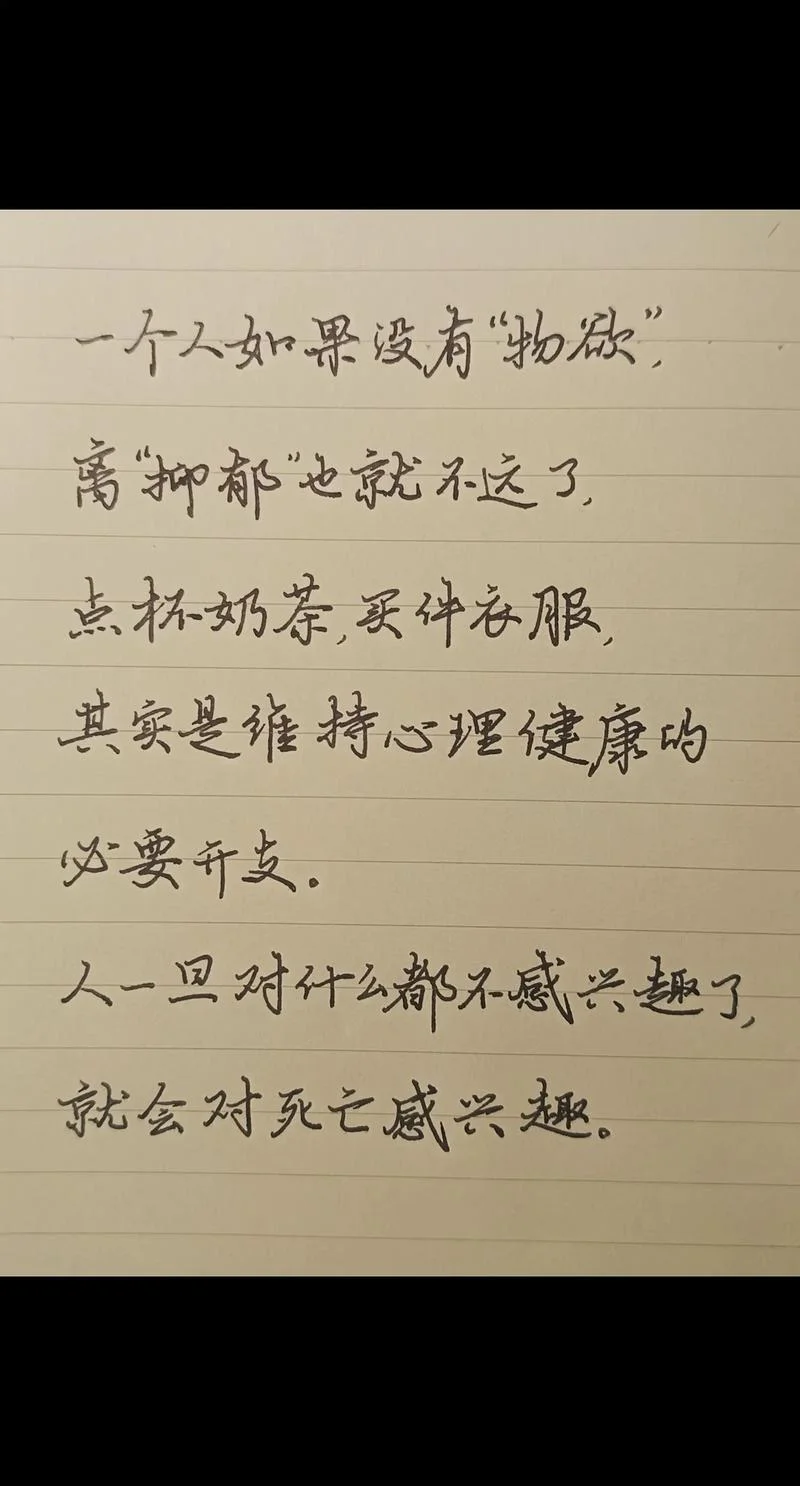 一个人如果没有“物欲”,
离“抑郁”也就不远了,
点杯奶茶,买件衣服,
其实是维持心理健康的
必要开支。
人一旦对什么都不感兴趣了,
就会对死亡感兴趣。